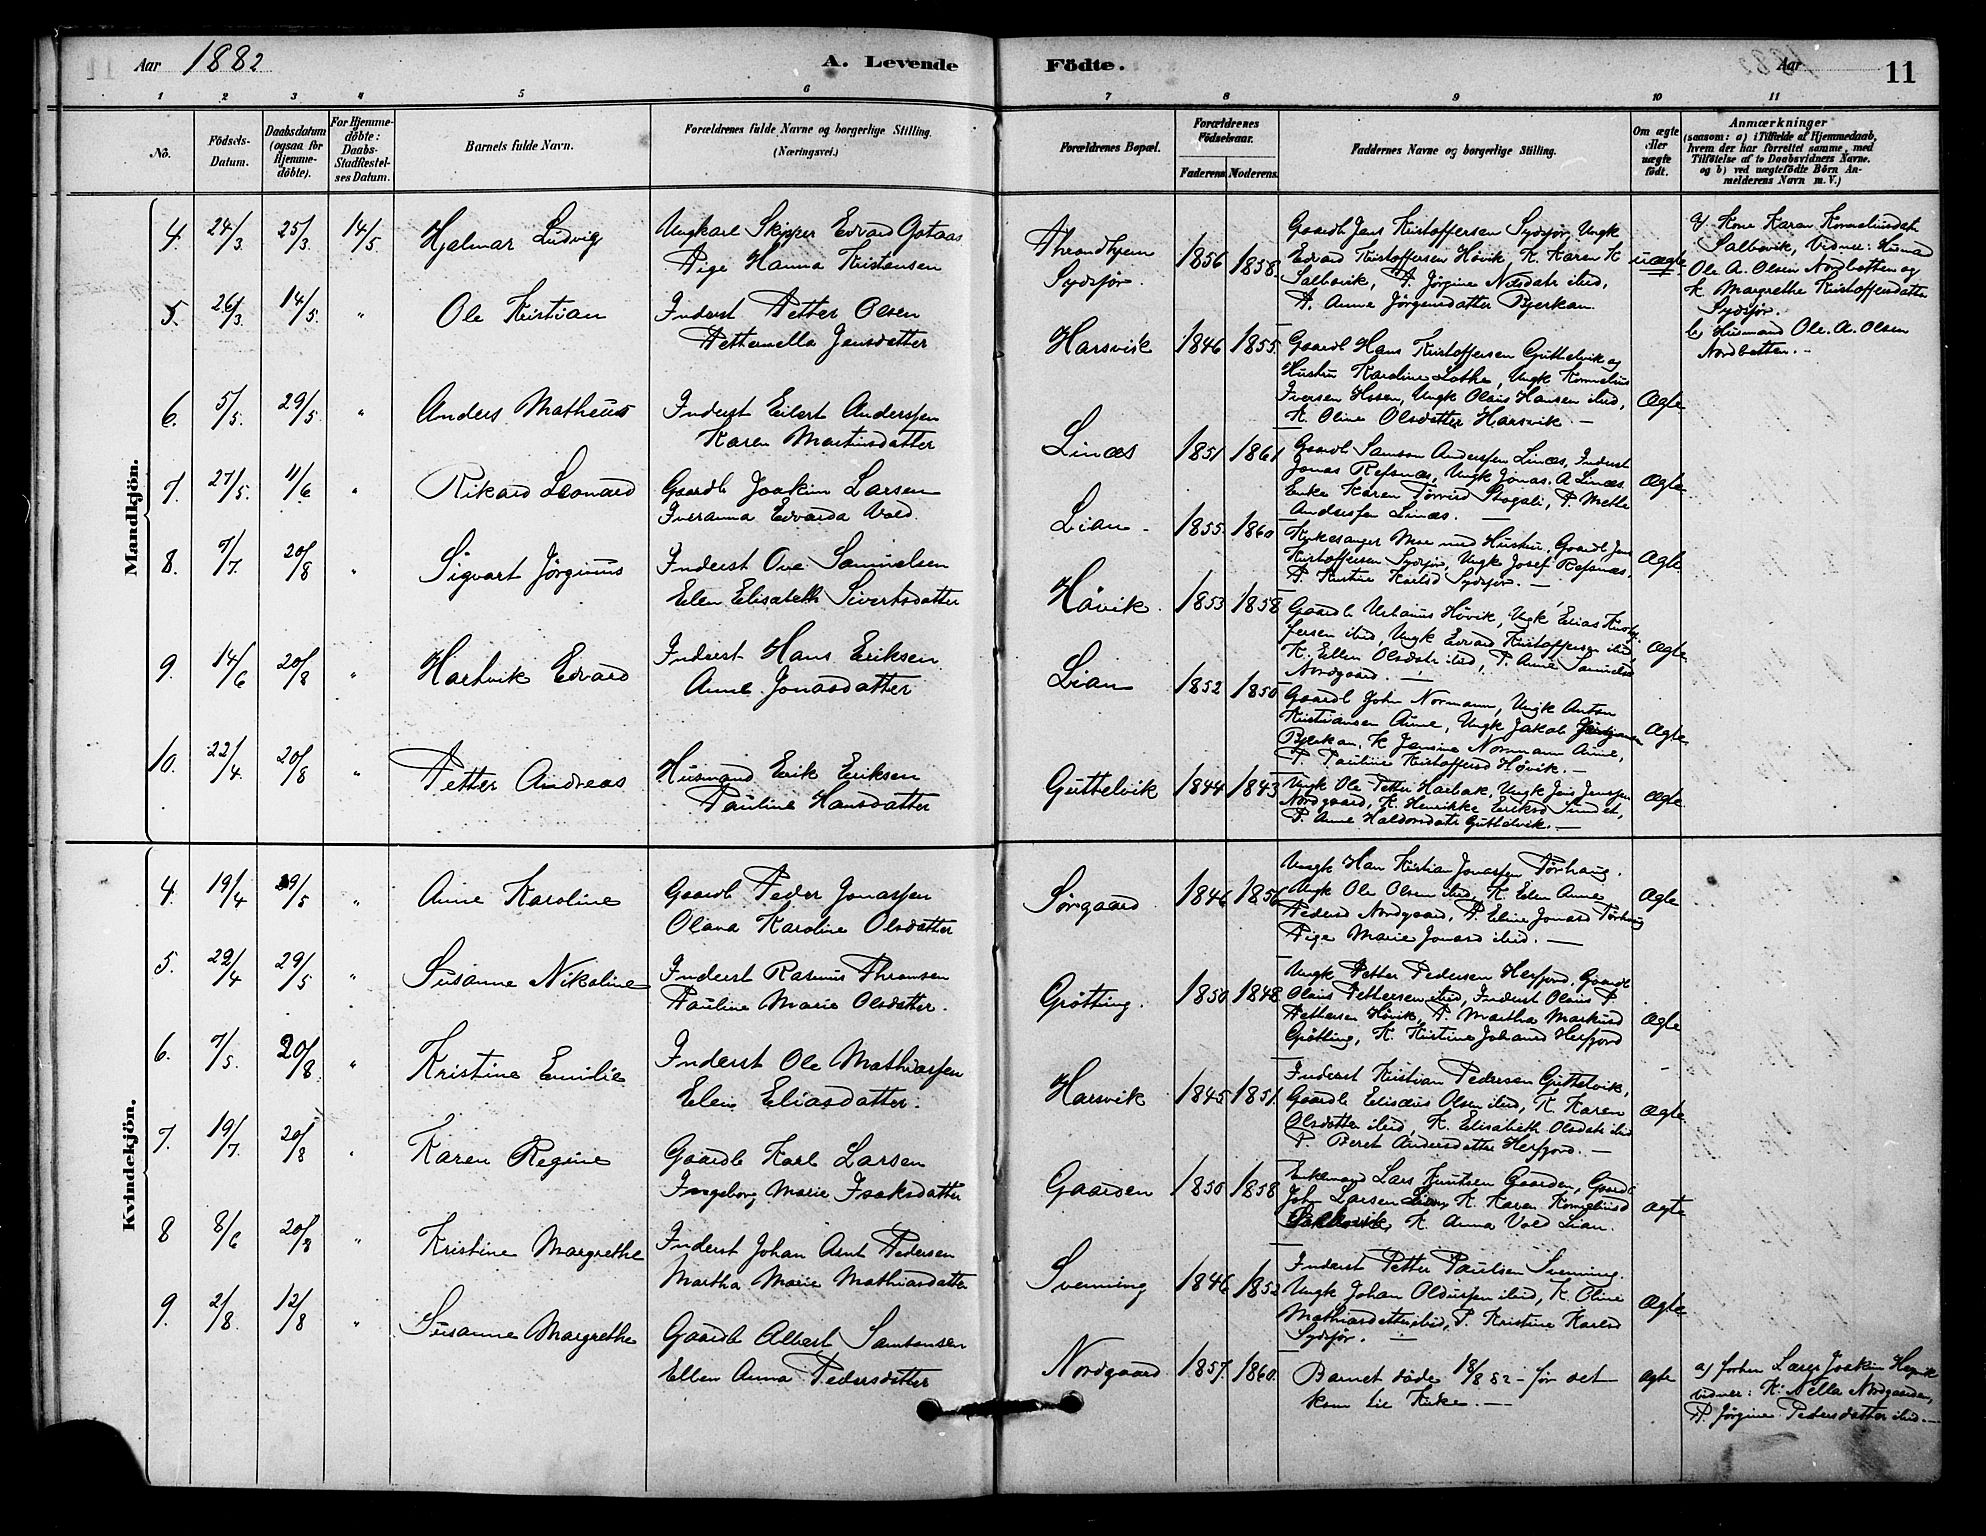 Aar 1882
A. Levende
Födte.
Aar
11
1 2 3 4 5 6 7 8 9 10 11
No.
Födsels-
Datum.
Daabsdatum
(ogsaa for
Hjemme-
döbte).
For Hjemme-
döbte:
Daabs-
Stadfæstel-
ses Datum.
Barnets fulde Navn.
Forældrenes fulde Navne og borgerlige Stilling.
(Næringsvei.)
Forældrenes Bopæl.
Forældrenes
Födselsaar.
Faderens Moderens.
Faddernes Navne og borgerlige Stilling.
Om ægte
eller
uægte
födt.
Anmærkninger
(saasom: a) i Tilfælde af Hjemmedaab,
hvem der har forrettet samme, med
Tilföielse af to Daabsvidners Navne.
og b) ved uægtefödte Börn An-
melderens Navn m. V.)
Mandkjön.
4. 24/3 25/3. 14/5 Hjalmar Ludvig
Ungkarl Skipper Edvard Gataas
Pige Hanna Kristensen
Throndhjem
Sydsjør.
1856 1858.
Gaardb Jens Kristoffersen Sydsjør, Ungk
Edvard Kristoffersen Høvik, K. Karen K
Salbovik, P. Jørgine Nilsdatr ibid,
P. Anne Jørgensdatter Bjerkan.
uægte
a) Kone Karen Korneliusdat
Salbovik, Vidner: Husmd
Ole A. Olsen Nordbotten og
K Margrethe Kristoffersdatter
Sydsjør.
b) Husmand Ole. A. Olsen
Nordbotten.-
5. 26/3. 14/5. " Ole Kristian
Inderst Petter Olsen
Petternella Jensdatter
Harsvik 1846 1855.
Gaardb Hans Kristoffersen Guttelvik og
Hustru Karoline Lothe, Ungk Kornelius
Iversen Hosen, Ungk Olaus Hansen ibid,
K. Oline Olsdatter Harsvik. -
Ægte
6. 5/5. 29/5. " Anders Matheus
Inderst Eilert Anderssen
Karen Martinsdatter
Linæs 1851 1861
Gaardb Samson Anderssen Linæs, Inderst
Jonas Refsnæs, Ungk Jonas. A Linæs
Enke Karen Stogali, P. Mette
Anderssen Linæs. -
Ægte
7. 27/5. 11/6 " Rikard Leonard
Gaardb Joakim Larsen
Iveranna Edvarda Vold.
Lian - 1855. 1860
Kirkesanger Moe med Hustru. Gaardb Jens
Kristoffersen Sydsjør, Ungk Josef Refsnæs,
P. Kristine Karlsd Sydsjør. -
Ægte
8. 7/7. 20/8 " Sigvart Jørginus
Inderst Ove Samuelsen
Elen Elisabeth Sivertsdatter
Høvik. 1853 1858
Gaardb Urbanus Høvik, Ungk Elias Kristof-
fersen ibid, Ungk Edvard Kristoffersen ibid,
K. Ellen Olsdatr ibid, P. Anne Samuelsd
Nordgaard. -
Ægte
9. 14/6 20/8 " Hartvik Edvard
Inderst Hans Eriksen
Anne Jonasdatter
Lian 1852 1850
Gaardb John Normann, Ungk Anton
Kristiansen Aune, Ungk Jakob
Bjerkan, K Jensine Normann Aune,
P Pauline Kristoffersd Høvik. -
Ægte
10. 22/4. 20/8 " Petter Andreas
Husmand Erik Eriksen
Pauline Hansdatter
Guttelvik 1844 1843
Ungk Ole Petter Harbak, Ungk Jens Jenssen
Nordgaard, K. Henrikke Eriksd Sundet,
P. Anne Haldorsdatr Guttelvik. -
Ægte
Kvindekjön.
4. 19/4 29/5 " Anne Karoline
Gaardb Peder Jonassen
Olava Karoline Olsdatter
Sørgaard 1846 1856
Ungk Han Kristian Jonassen Tørhaug.
Ungk Ole Olsen ibid, K. Elen Anne
Pedersd Nordgaard, P. Eline Jonasd Tørhaug
Pige Marie Jonasd ibid. -
Ægte
5. 22/4 29/5 " Susanne Nikoline
Inderst Rasmus Thronsen
Pauline Marie Olsdatter.
Grøtting. 1850. 1848
Ungk Petter Pedersen Herfjord, Gaardb
Olaus Pettersen ibid, Inderst Olaus P.
Pettersen Høvik, P. Martha Markusd
Grøtting, K. Kristine Johansd Herfjord
Ægte
6. 7/5. 20/8. " Kristine Emilie
Inderst Ole Mathiassen
Elen Eliasdatter.
Harsvik 1845 1851.
Inderst Kristian Pedersen Guttelvik,
Gaardb Elisæus Olsen ibid, K. Karen
Olsdatter ibid, K. Elisabeth Olsdatr ibid
P. Beret Andersdatter Herfjord. -
Ægte
7. 19/7. 20/8 " Karen Regine
Gaardb Karl Larsen
Ingeborg Marie Isaksdatter
Gaarden 1850 1858
Enkemand Lars Knutsen Gaarden, Gaardb
Joh Larsen Lian, K. Karen Korneliusd
Salbovik, K. Anna Vold Lian.
ægte
8 8/6 20/8 " Kristine Margrethe
Inderst Johan Arnt Pedersen
Martha Marie Mathiasdatter
Svenning 1846 1852
Inderst Petter Paulsen Svenning.
Ungk Johan Oldussen ibid, K. Oline
Mathiasdatter ibid, P. Kristine Karlsd
Sydsjør. -
Ægte
9. 2/8. 12/8 " Susanne Margrethe
Gaardb Albert Samsonsen
Ellen Anna Pedersdatter
Nordgaard 1857. 1860.
Barnet døde 18/8 82 - før det
kom til Kirke. -
ægte
a) forhen Lærer Joakim
vidner: K. Nella Nordgaarden,
P. Jørgine Pedersdatter ibid. -